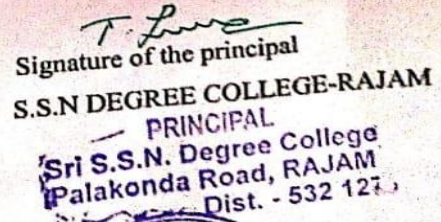 Signature of the principal
S.S.N DEGREE COLLEGE-RAJAM
PRINCIPAL
Sri S.S.N. Degree College
Palakonda Road, RAJAM
Dist. - 532 127.